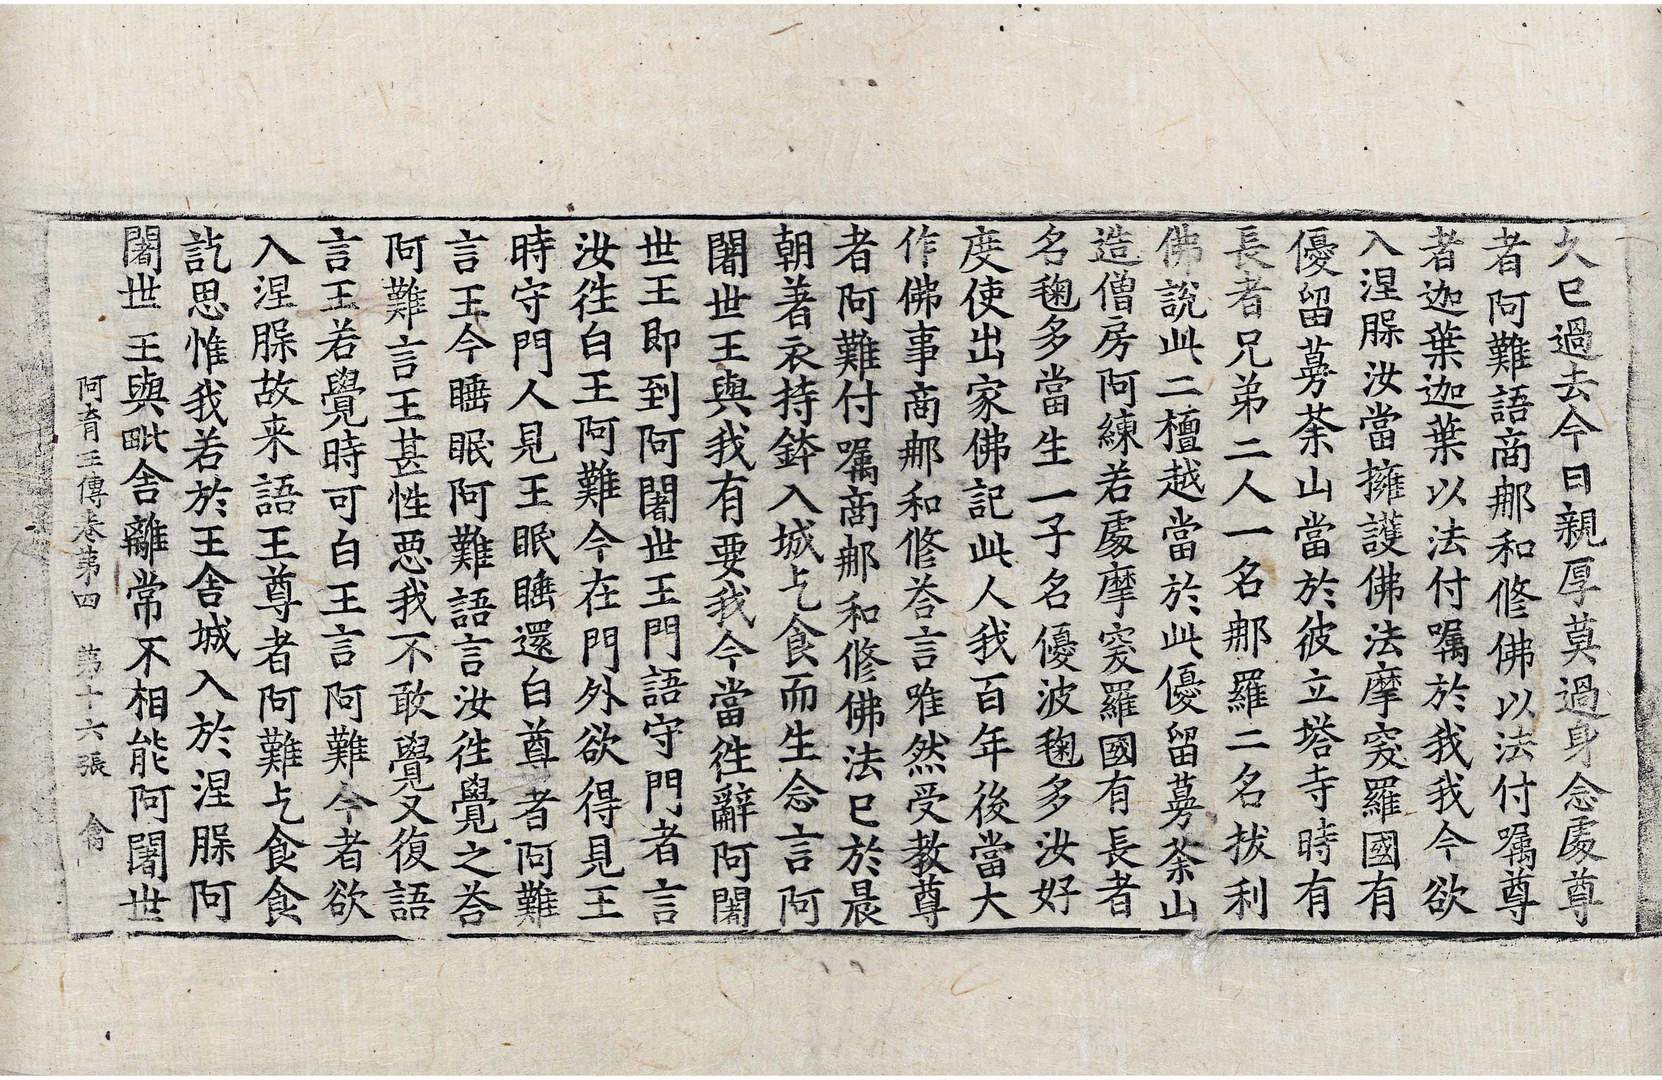 久已過去今日親厚莫過身念處尊
者阿難語商那和修佛以法付嘱尊
者迦葉迦葉以法付嘱於我我今欲
入涅膎汝當擁護佛法摩突羅國有
優留蔓荼山當於彼立塔寺時有
長者兄弟二人一名那羅二名拔利
佛說此二檀越當於此優留蔓荼山
造僧房阿練若處摩突羅國有長者
名毱多當生一子名優波毱多汝好
度使出家佛記此人我百年後當大
作佛事商那和修荅言唯然受教尊
者阿難付嘱商那和修佛法已於晨
朝著衣持鉢入城乞食而生念言阿
闍世王與我有要我今當往辭阿闍
世王即到阿闍世王門語守門者言
汝往白王阿難今在門外欲得見王
時守門人見王眠睡還白尊者阿難
言王今睡眠阿難語言汝往覺之荅
阿難言王甚性惡我不敢覺又復語
言王若覺時可白王言阿難今者欲
入涅膎故来語王尊者阿難乞食食
訖思惟我若於王舍城入於涅膎阿
闍世王與毗舍離常不相能阿闍世
阿育王傳卷第四 第十六張 禽